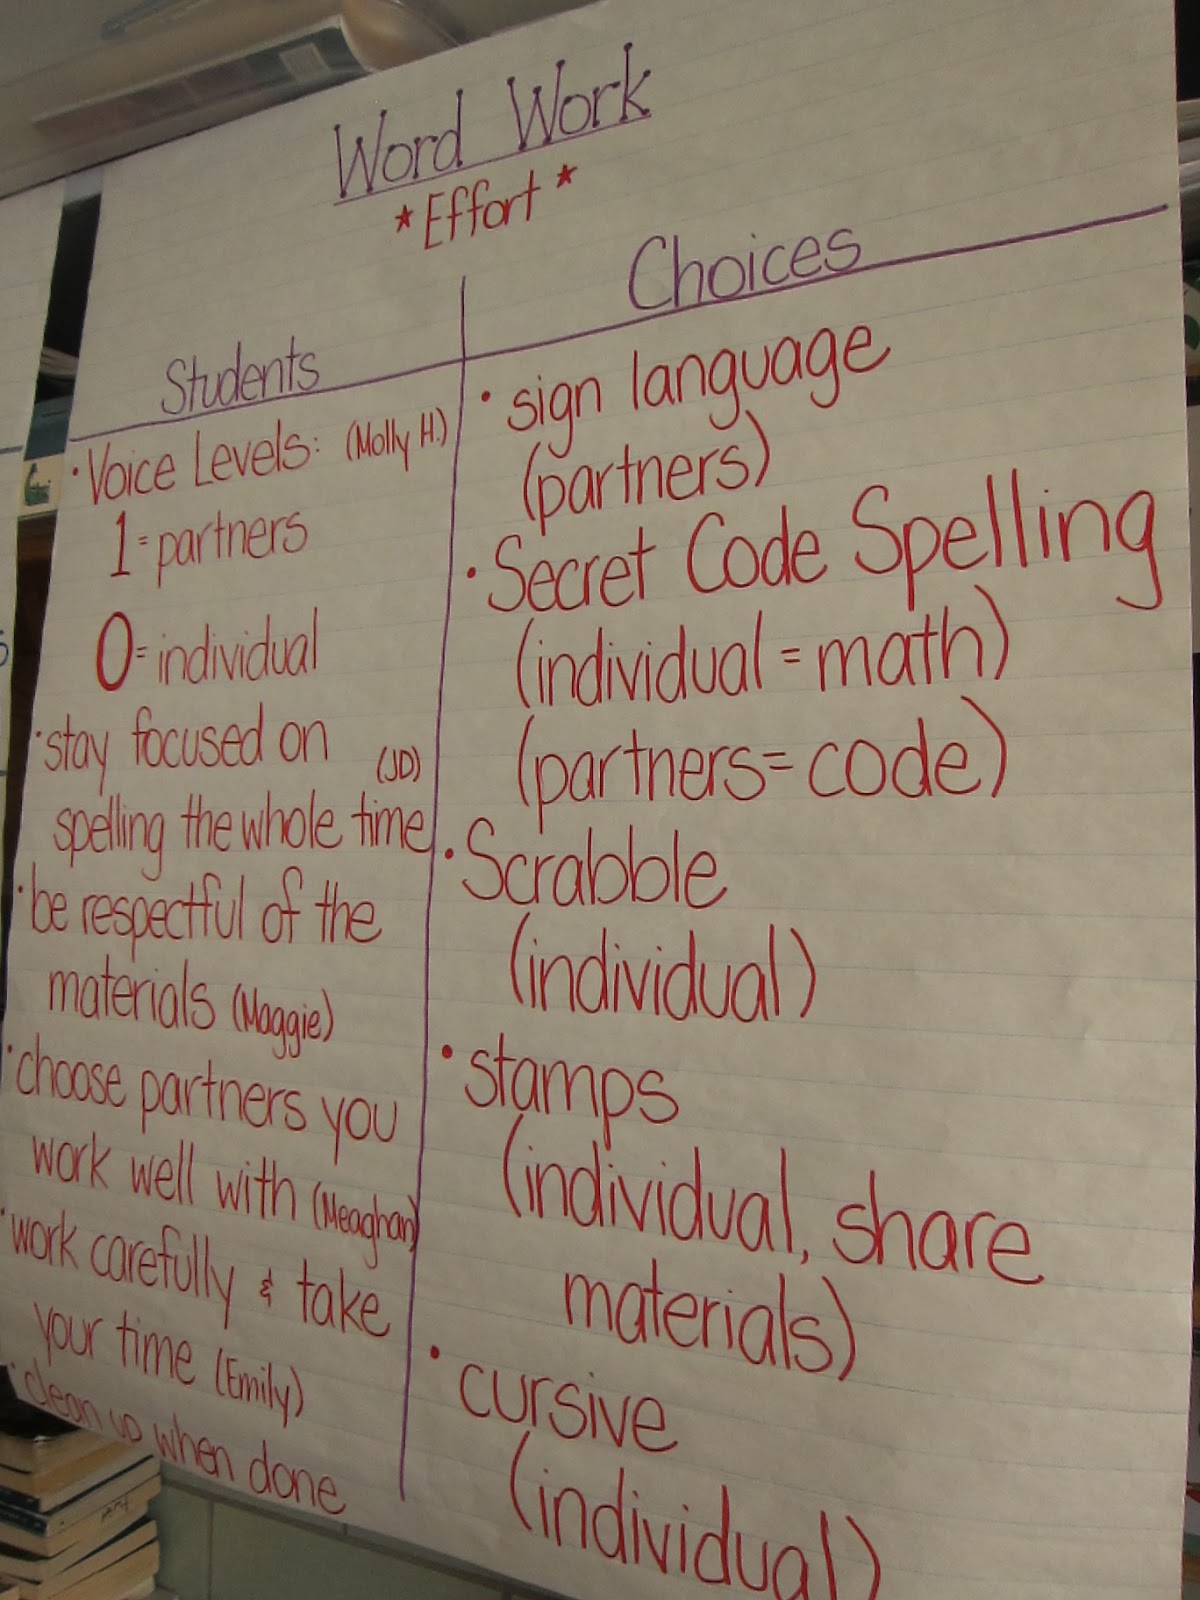 Word Work
*Effort*
Students
• Voice Levels: (Molly H.)
1 = partners
0 = individual
• stay focused on (JD)
spelling the whole time
• be respectful of the
materials (Maggie)
• choose partners you
work well with (Meaghan)
• work carefully & take
your time (Emily)
• clean up when done
Choices
• sign language
(partners)
• Secret Code Spelling
(individual = math)
(partners = code)
• Scrabble
(individual)
• stamps
(individual, share
materials)
• cursive
(individual)